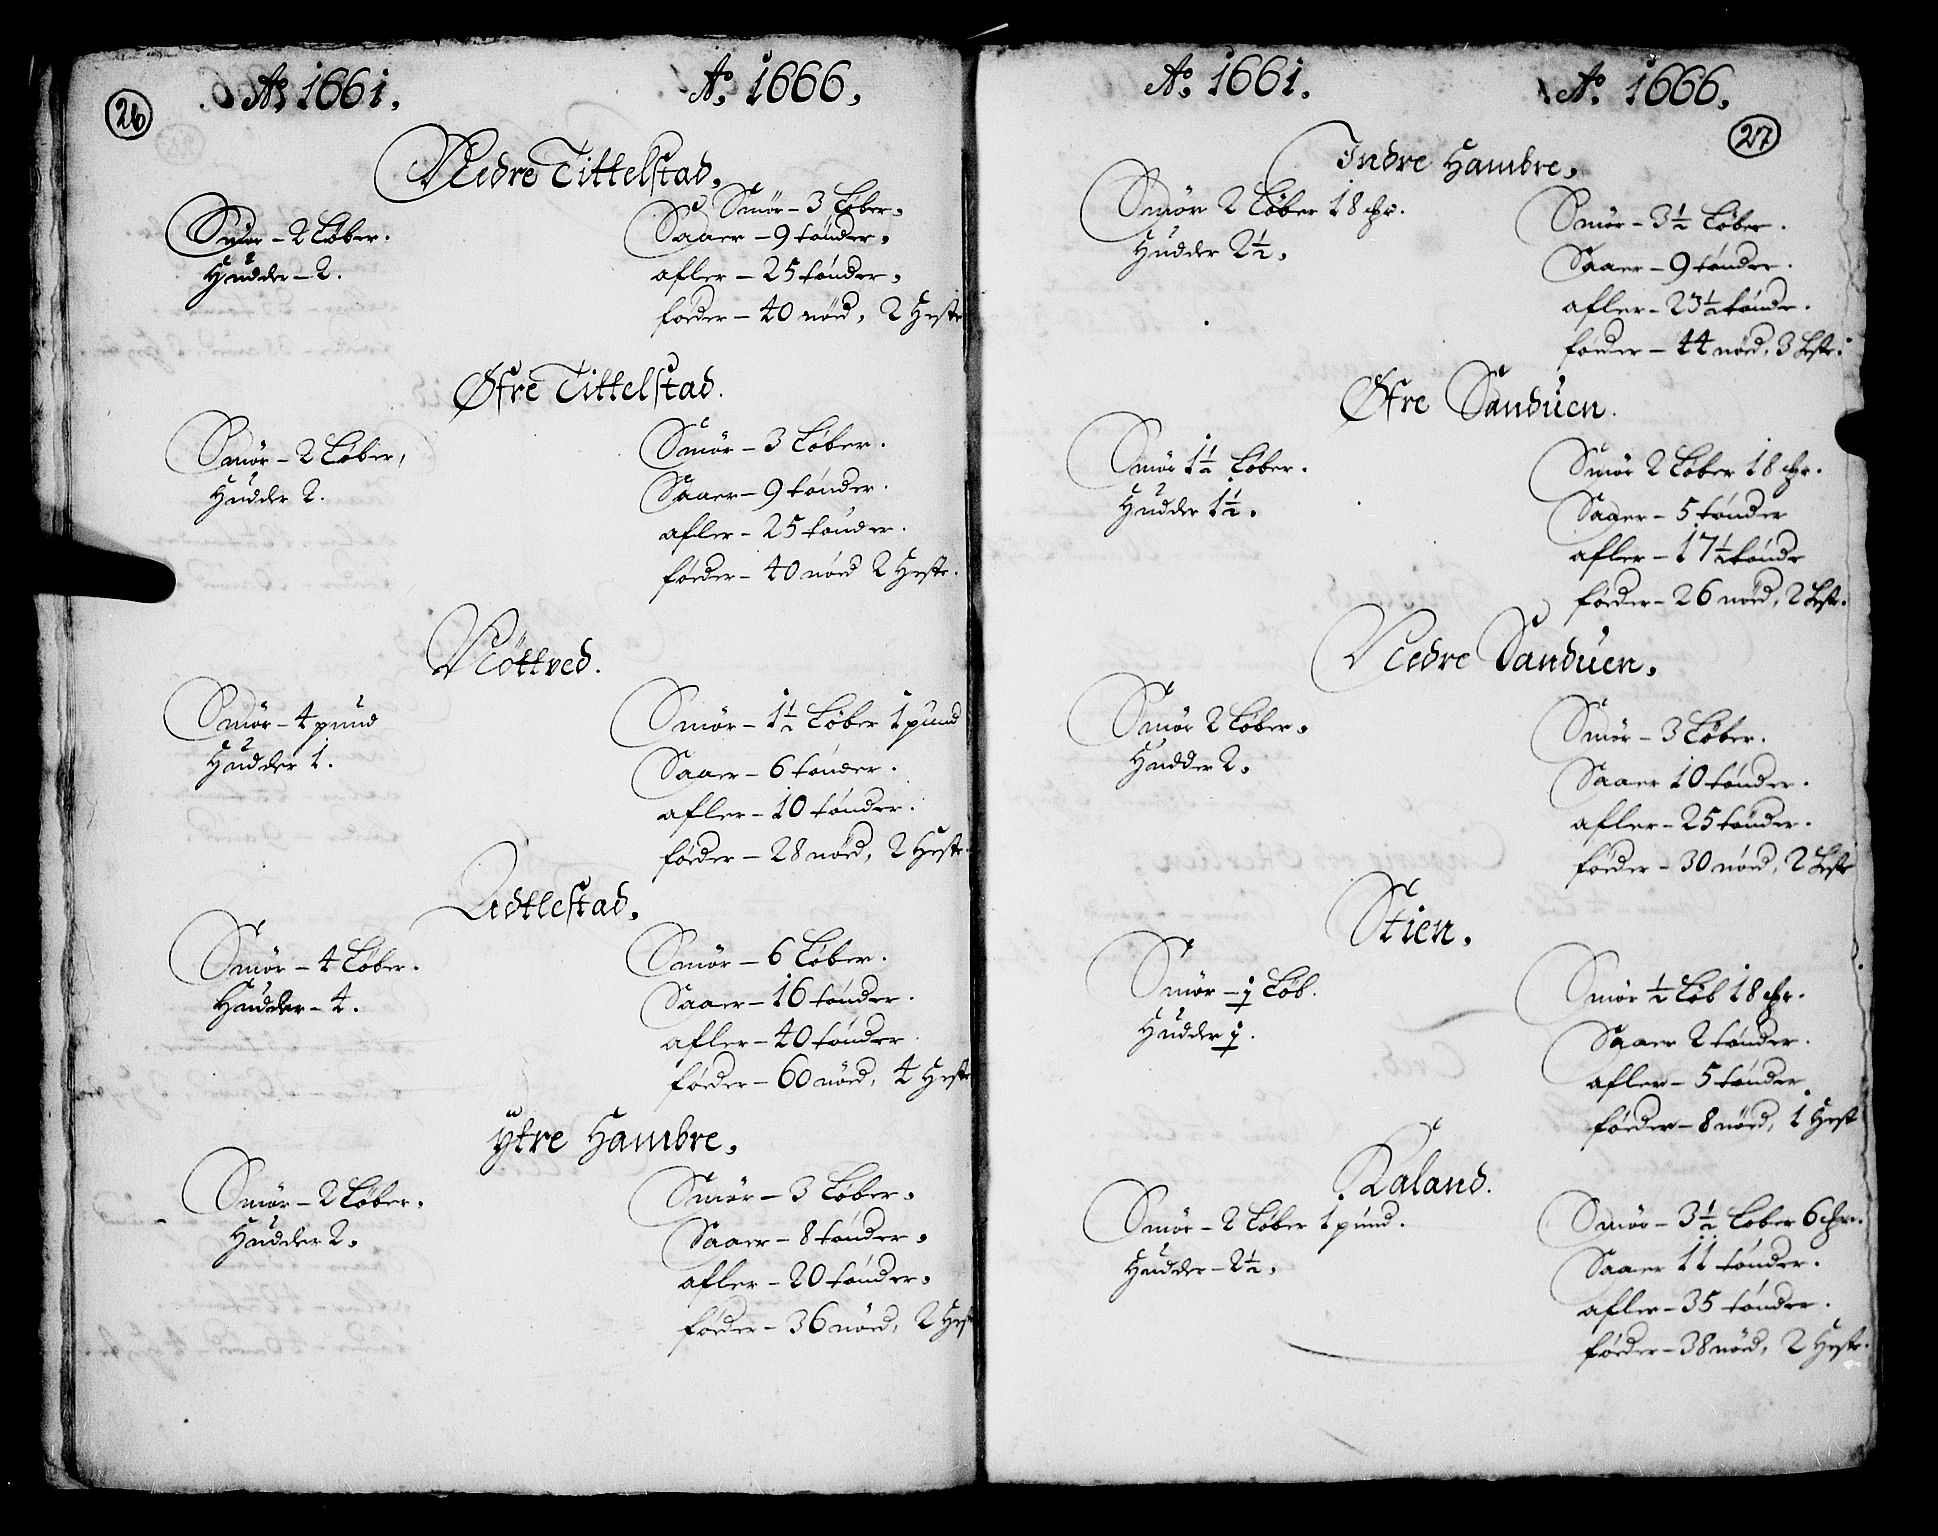 26
Ao. 1661. Ao. 1666.
Nedre Tittelstad.
Smör – 2 Løber.
Hudder – 2.
Smör – 3 Løber.
Saaer – 9 tønder.
afler – 25 tønder.
føeder – 40 nöed, 2 Heste
Øfre Tittelstad.
Smör – 2 Løber,
Hudder 2.
Smör – 3 Løber.
Saaer – 9 tønder.
afler – 25 tønder.
føeder – 40 nöed 2 Heste.
Nöttved.
Smör – 4 pund
Hudder 1.
Smör – 1½ Løber 1 pund
Saaer – 6 tønder.
afler – 10 tønder.
føeder – 28 nöed, 2 Heste.
Adtlestad.
Smör – 4 Løber.
Hudder – 4.
Smör – 6 Løber.
Saaer – 16 tønder.
afler – 40 tønder
føeder – 60 nöed, 4 Heste
ytre Hambre.
Smör – 2 Løber.
Hudder 2.
Smör – 3 Løber.
Saaer – 8 tønder.
afler – 20 tønder.
føeder – 36 nöed, 2 Hest
27
Ao. 1661. Ao. 1666.
Indre Hambre.
Smör 2 Løber 18 .
Hudder 2½.
Smör – 3½ Løber.
Saaer – 9 tønder.
afler – 23½ tønder.
føeder – 44 nöed, 3 Heste.
Øfre Sanduen.
Smör 1½ Løber.
Hudder 1½.
Smör 2 Løber 18 .
Saaer – 5 tønder
afler – 17½ tønder
føeder – 26 nöed, 2 Heste.
Nedre Sanduen.
Smör 2 Løber.
Hudder 2.
Smör – 3 Løber.
Saaer 10 tønder.
afler – 25 tønder.
føeder – 30 nöed, 2 Heste
Stien.
Smör – ½ Løb.
Hudder ½.
Smör ½ Løb 18 .
Saaer 2 tønder.
afler – 5 tønder
føeder – 8 nöed, 1 Hest
Kaland.
Smör – 2 Løber 1 pund.
Hudder – 2½.
Smör – 3½ Løber 6 .
Saaer 11 tønder.
afler – 35 tønder.
føeder – 38 nöed, 2 Heste.